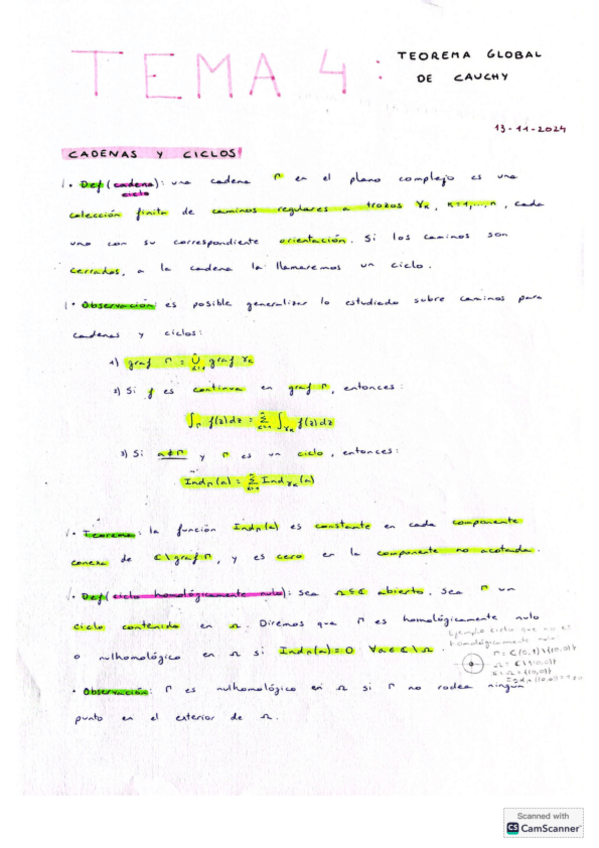 TEMA 4:
TEOREMA GLOBAL
DE CAUCHY
13-11-2024
CADENAS Y CICLOS
• Def (cadena): una cadena Γ en el plano complejo es una
ciclo
colección finita de caminos regulares a trozos γk, k=1,...,n, cada
uno con su correspondiente orientación. Si los caminos son
cerrados, a la cadena la llamaremos un ciclo.
• Observación: es posible generalizar lo estudiado sobre caminos para
cadenas y ciclos:
1) graf Γ = ∪ graf γk
2) Si f es continua en graf Γ, entonces:
∫Γ f(z)dz = Σ ∫γk f(z)dz
3) Si a∉Γ y Γ es un ciclo, entonces:
IndΓ(a) = Σ Indγk(a)
• Teorema: la función IndΓ(a) es constante en cada componente
conexa de ℂ\graf Γ, y es cero en la componente no acotada.
• Def (ciclo homológicamente nulo): sea Ω⊆ℂ abierto. Sea Γ un
ciclo contenido en Ω. Diremos que Γ es homológicamente nulo
o nulhomológico en Ω si IndΓ(a)=0 ∀a∈ℂ\Ω.
Ejemplo ciclo que no es
homológicamente nulo
• Observación: Γ es nulhomológico en Ω si Γ no rodea ningún
punto en el exterior de Ω.
Scanned with
CS CamScanner